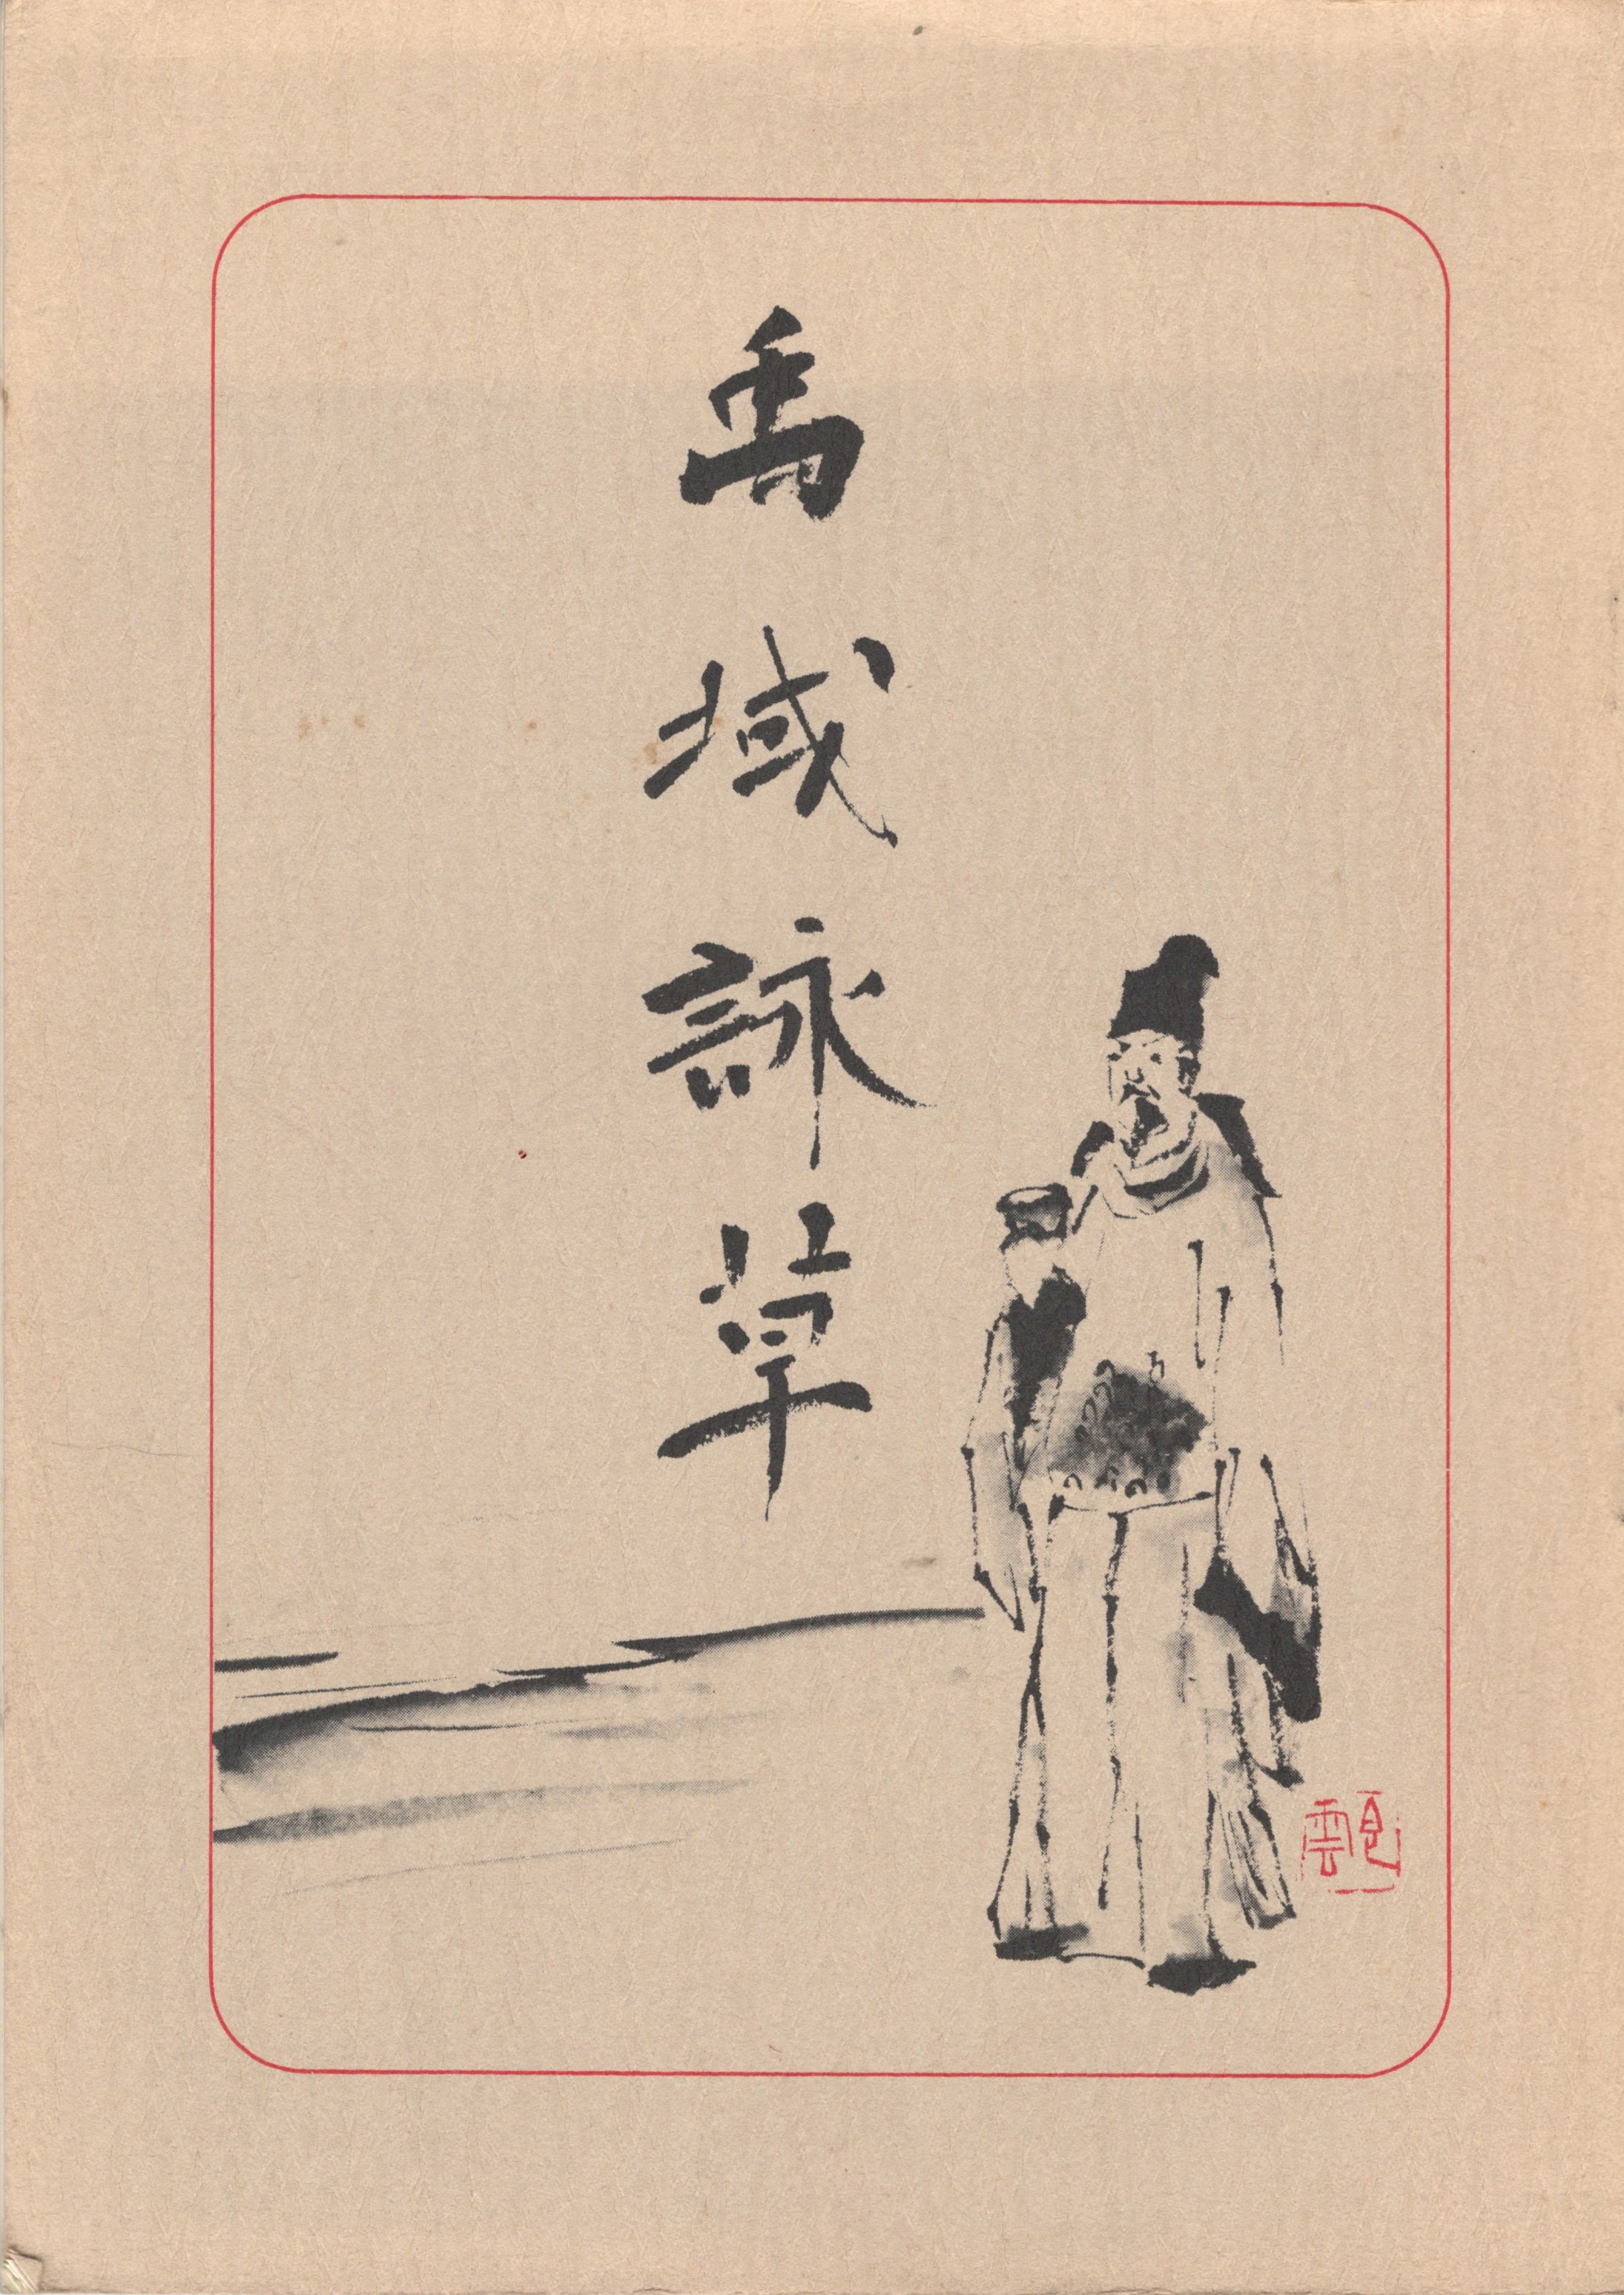 禹域詠草